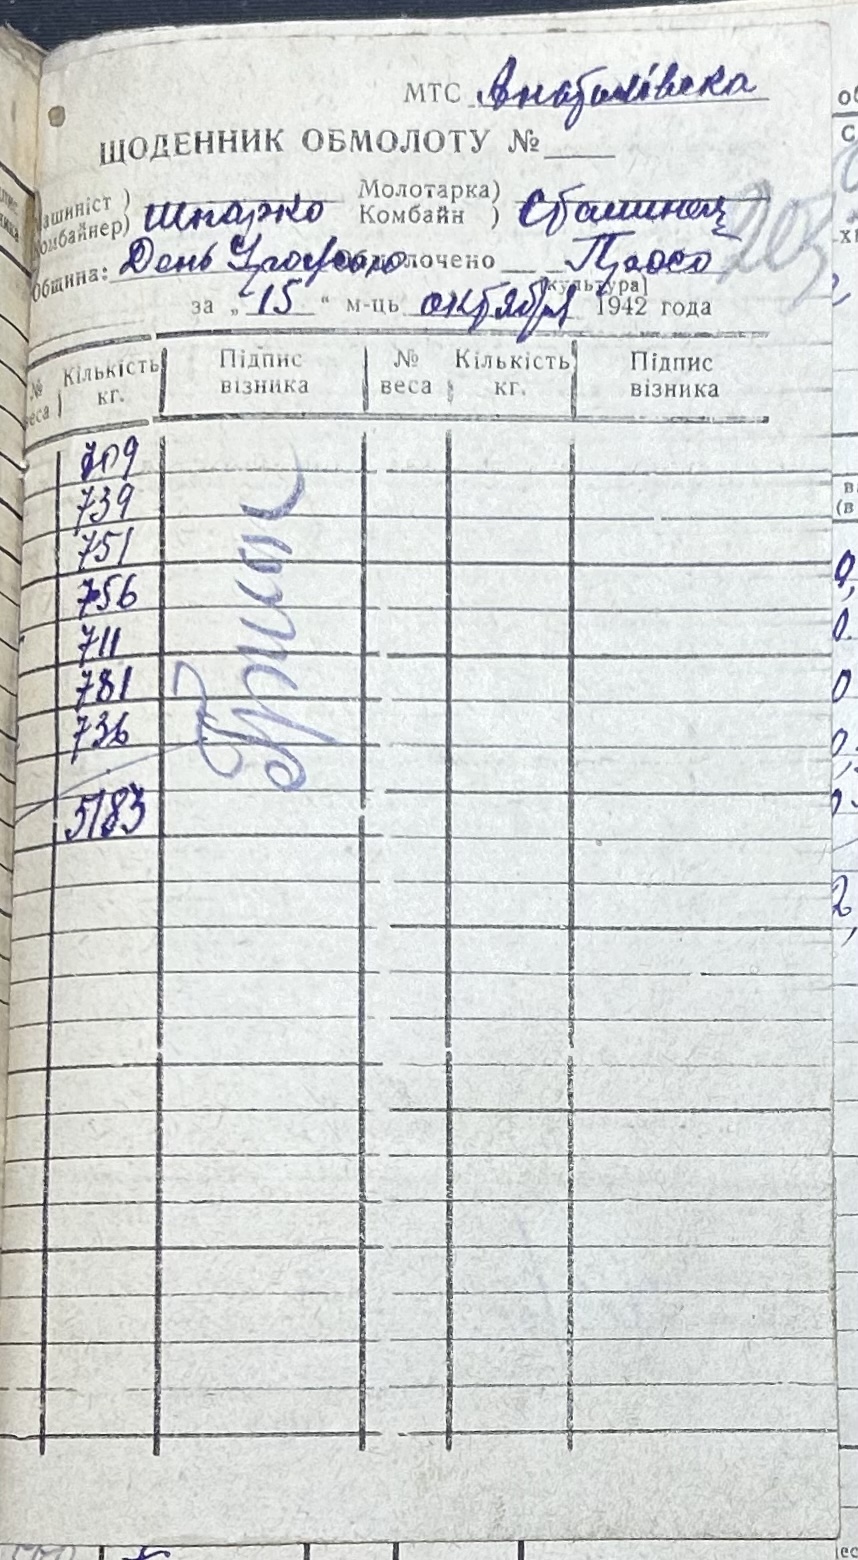 МТС Анатолівска
ЩОДЕННИК ОБМОЛОТУ №
Машиніст ) Молотарка)
Комбайнер) Шпарко Комбайн )
205
Община: День Обмолочено Просо
(культура)
за „15“ м-ць октября 1942 года
№ веса Кількість кг. Підпис візника № веса Кількість кг. Підпис візника
709
739
751
756
711
781
736
5183